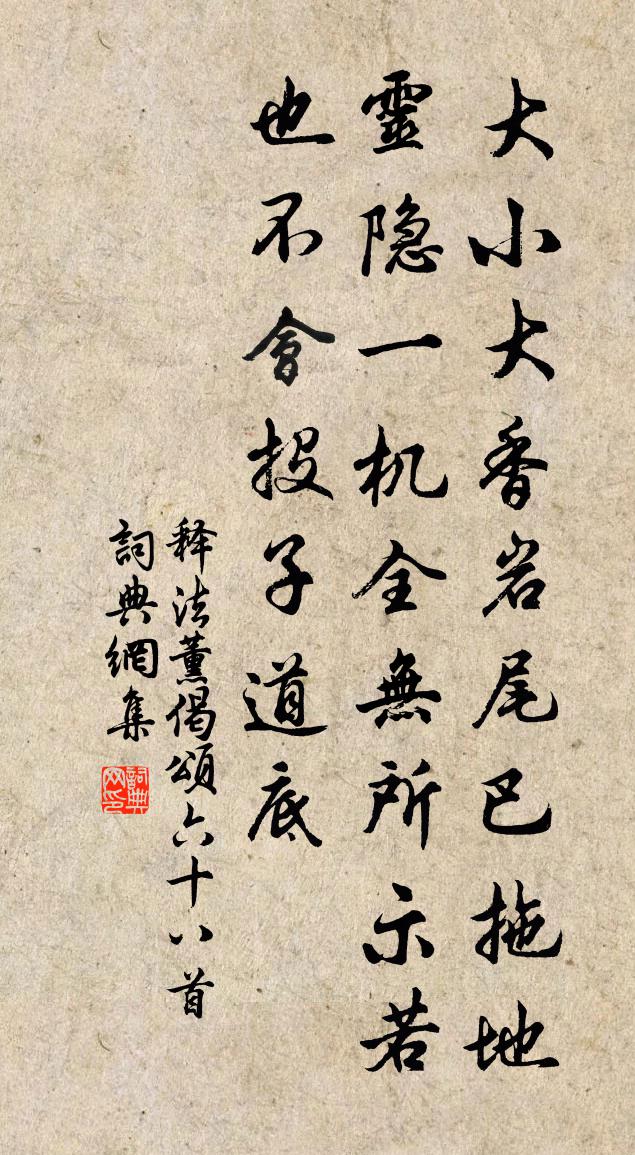 大小大香岩尾巴拖地
靈隐一机全無所示若
也不會投子道底
释法薰偈頌六十八首
詞典網集
詞典网印